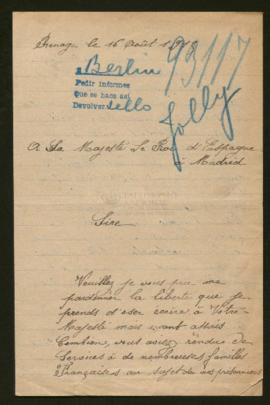 le 16 Août 1918
Berlin
93117
Pedir informes
que se hace así
Devolver sello
Jolly
A Sa Majesté Le Roi d'Espagne
à Madrid
Sire
Veuillez je vous prie me
pardonner la liberté que je
prends d'oser écrire à Votre
Majesté mais ayant appris
Combien, vous aviez rendu de
Services à de nombreuses familles
Françaises au sujet de nos prisonniers